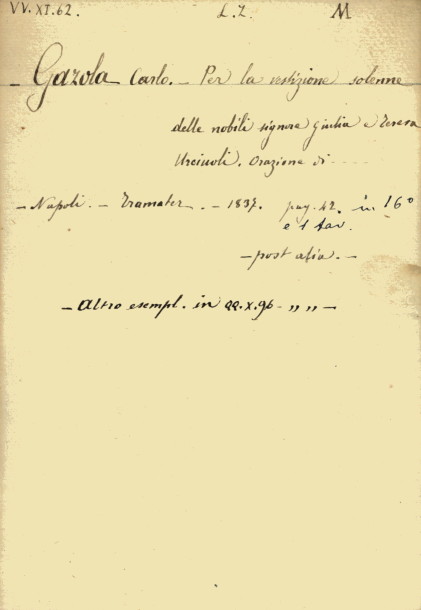 VV. XI. 62. L. Z. M
— Gazola Carlo. — Per la vestizione solenne
delle nobili signore Giulia e Teresa
Urciuoli. Orazione di - - - -
— Napoli. — Tramater. — 1837. pag. 42. in 16°
e 1 tav.
— post alia. —
— Altro esempl. in QQ. X. 96 - „ „ —